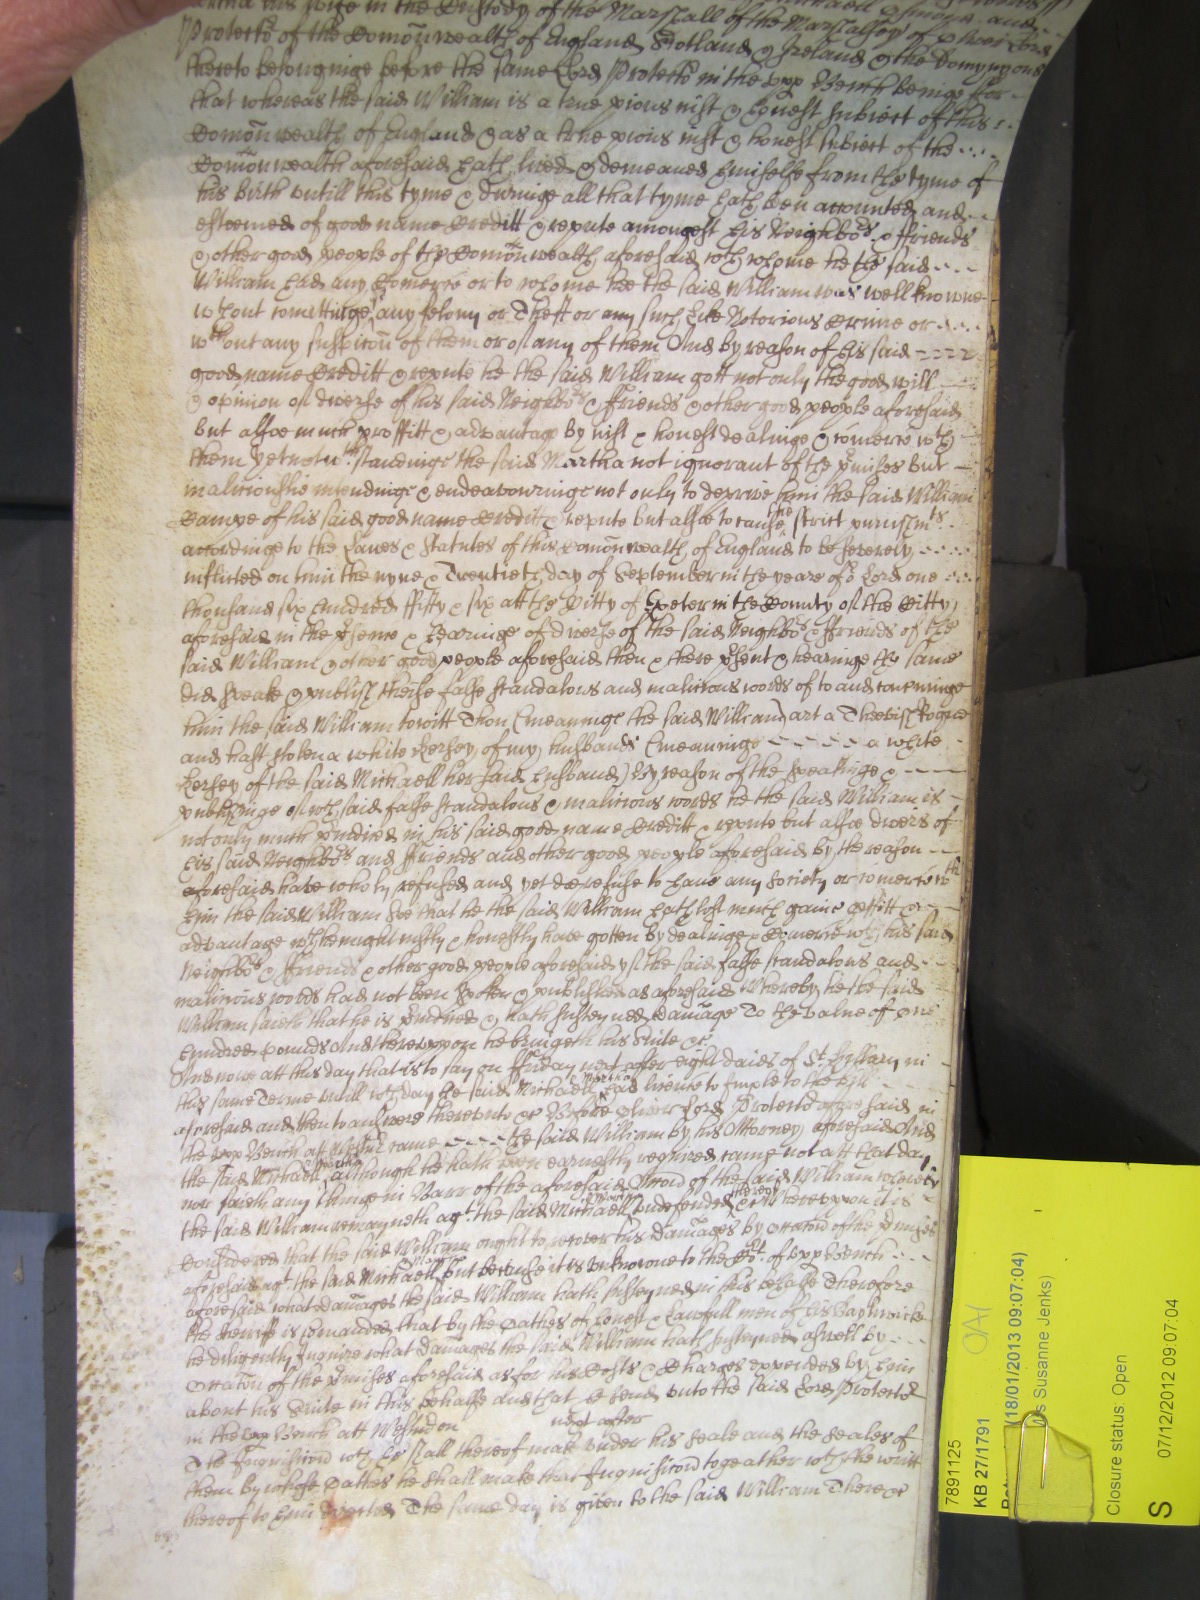 Martha his wife in the Custody of the Marshall of the Marshalsey
Protector of the Comõnwealth of England Scotland & Ireland & the Domynyons
thereto belonginge before the same Lord Protector in the upp Bench beinge For
that whereas the said William is a true pious iust & honest subiect of this
Comõnwealth of England & as a true pious iust & honest subiect of the
Comõnwealth aforesaid hath lived & demeaned himselfe from the tyme of
his birth untill this tyme & duringe all that tyme hath ben accounted and
esteemed of good name Creditt & repute amongest his Neighbors & ffriends
& other good people of the Comõnwealth aforesaid wth whome he the said
William had any Comerce or to whome hee the said William was well knowne
wthout comittinge any felony or Theft or any such like Notorious Crime or
wthout any suspicõn of them or of any of them And by reason of his said
good name Creditt & repute he the said William gott not only the good will
& opinion of diverse of his said Neighbors & ffriends & other good people aforesaid
but alsoe much proffitt & advantage by iust & honest dealinge & comerce wth
them yet notwthstandinge the said Martha not ignorant of the pmises but
malitiouslie intendinge & endeavouringe not only to deprive him the said William
Campe of his said good name Creditt & repute but alsoe to cause the strict punishmts
accordinge to the Lawes & Statutes of this Comõnwealth of England to be severely
inflicted on him the nyne & Twentieth day of September in the yeare of or Lord one
thousand six hundred ffifty & six att the Citty of Exeter in the County of the Citty
aforesaid in the psence & hearinge of diverse of the said Neighbors & ffriends of the
said William & other good people aforesaid then & there psent & hearinge the same
did speake & publish theise false scandalous and malitious words of to and concerninge
him the said William towitt Thou (meaninge the said William) art a Theevish Rogue
and hast stolen a white Kersey of my husbands (meaninge a white
Kersey of the said Michaell her said husband) By reason of the speakinge &
publishinge of wch said false scandalous & malitious words he the said William is
not only much piudiced in his said good name Creditt & repute but alsoe divers of
his said Neighbors and ffriends and other good people aforesaid by the reason
aforesaid have wholy refused and yet doe refuse to have any society or comerce wth
him the said William Soe that he the said William hath lost much gaine pfitt &
advantage wch he might iustly & honestly have gotten by dealinge & Comerce wth his said
Neighbors & ffriends & other good people aforesaid yf the said false scandalous and
malitious words had not been spoken & published as aforesaid Whereby he the said
William saieth that he is piudiced & hath susteyned damage To the value of one
hundred pounds And thereuppon he bringeth his suite &c
And nowe att this day that is to say on ffriday next after eight daies of St. Hillary in
this same Terme untill wch day the said Michaell & Martha had licence to Imple to the bill
aforesaid and then to answere thereunto &c Before Oliver Lord Protector aforesaid in
the upp Bench att Westmr came the said William by his Attorney aforesaid And
the said Michaell & Martha although he hath been earnestly required came not att that day
nor saieth any thinge in Barr of the aforesaid Accõn of the said William whereby
the said William remayneth agt. the said Michaell & Martha undefended therein &c Whereuppon it is
Considered that the said William ought to recover his damages by occasion of the pmises
aforesaid agt. the said Michaell & Martha but because it is unknowne to the Cort. of upp Bench
aforesaid what damages the said William hath susteyned in this behalfe Therefore
the sherriffe is comanded that by the oathes of honest & lawfull men of his Baylywicke
he diligently Inquire what damages the said William hath susteyned aswell by
occasion of the pmises aforesaid as for his Costs & Charges expended by him
about his suite in this behalfe and that he send unto the said Lord Protector
in the upp Bench att Westmr on next after
The Inquisicõn wch he shall thereof make under his seale and the seales of
them by whose oathes he shall make that Inquisicõn togeather wth the writt
thereof to him directed The same day is given to the said William There &c
7891125
KB 27/1791
(18/01/2013 09:07:04)
Susanne Jenks)
Closure status: Open
S
07/12/2012 09:07:04